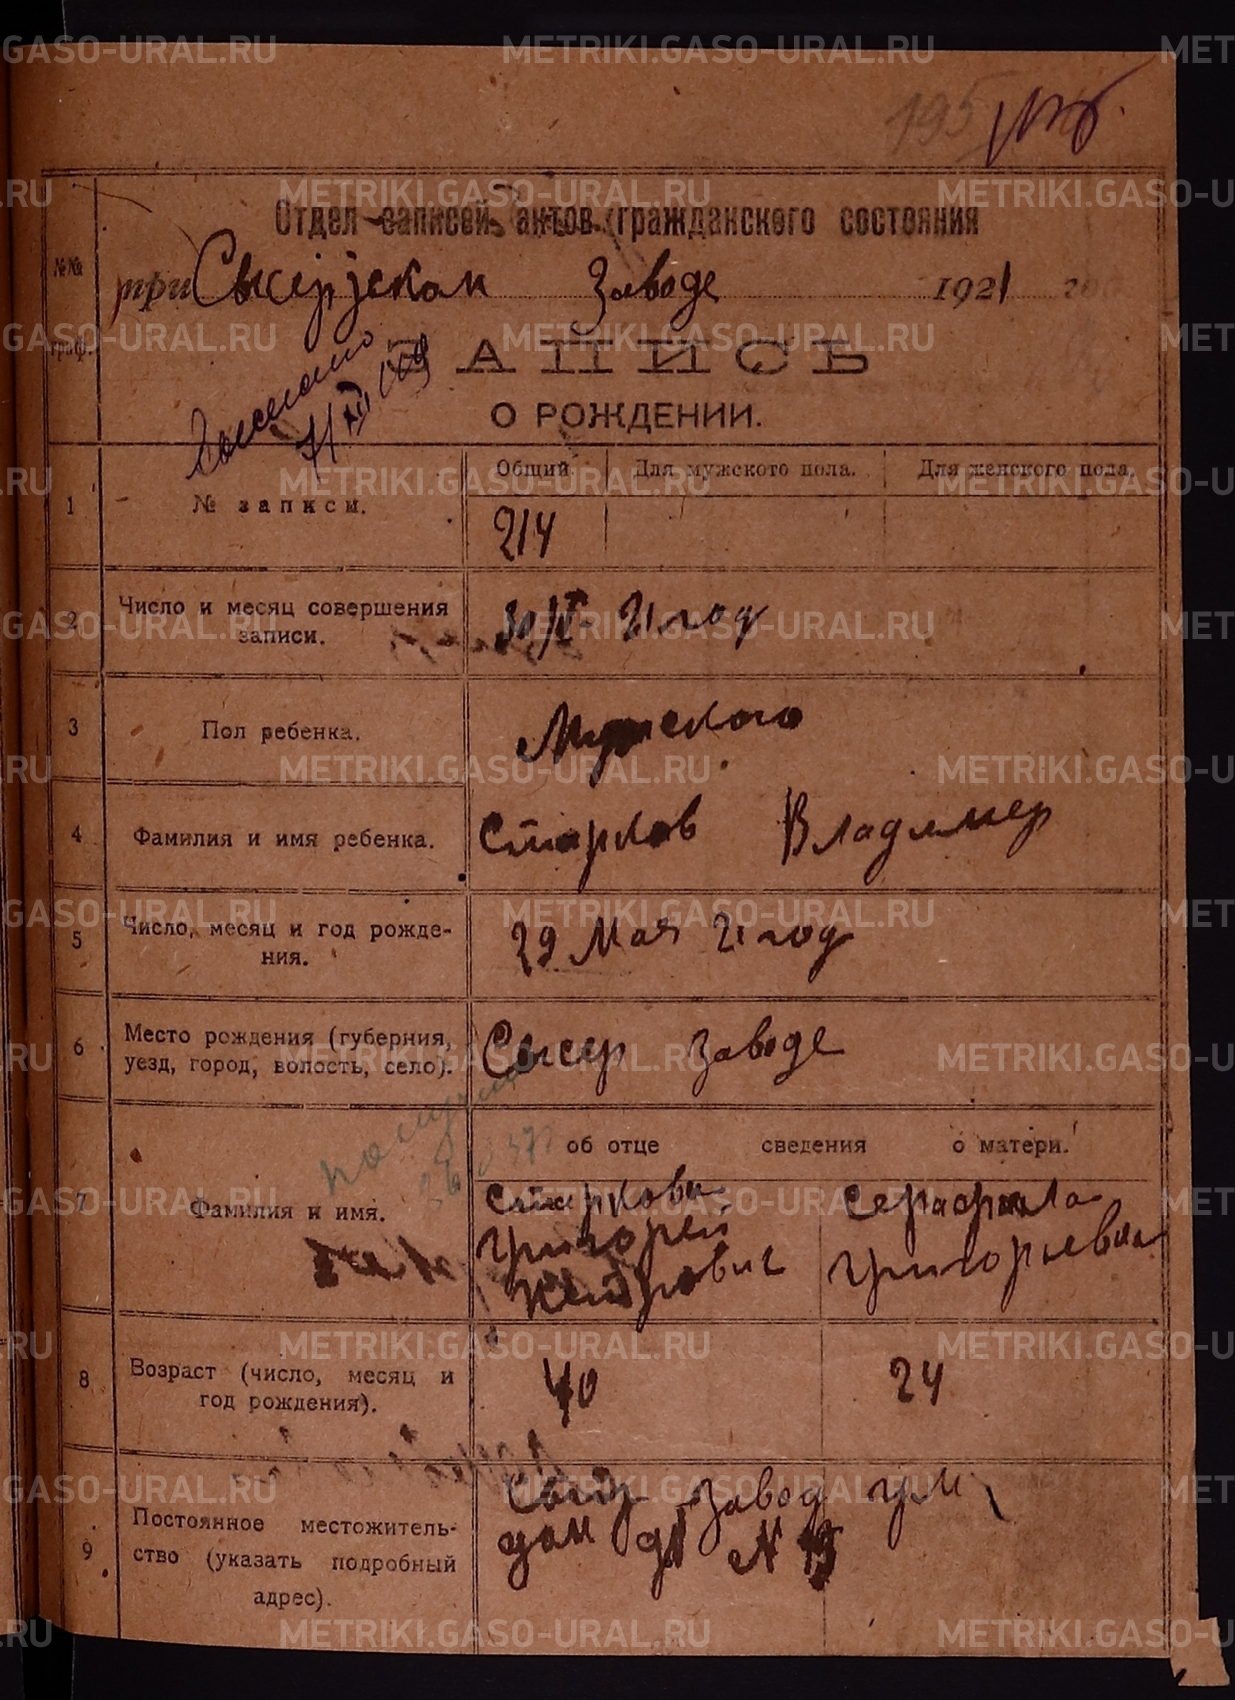 195
Отдел записей актов гражданского состояния
№№ граф.
при Сысертском Заводе 1921 год
ЗАПИСЬ
О РОЖДЕНИИ.
Общий Для мужского пола. Для женского пола.
1 № записи. 214
2 Число и месяц совершения
записи. 30/V 21 год
3 Пол ребенка. Мужского
4 Фамилия и имя ребенка. Старков Владимер
5 Число, месяц и год рожде-
ния. 29 Мая 21 год
6 Место рождения (губерния,
уезд, город, волость, село). Сысер заводе
об отце сведения о матери.
7 Фамилия и имя.
Старкова Серафима
Григорей Григорьевна
Петрович
8 Возраст (число, месяц и
год рождения). 40 24
9 Постоянное местожитель-
ство (указать подробный
адрес).
завод ул
дом № 19
METRIKI.GASO-URAL.RU